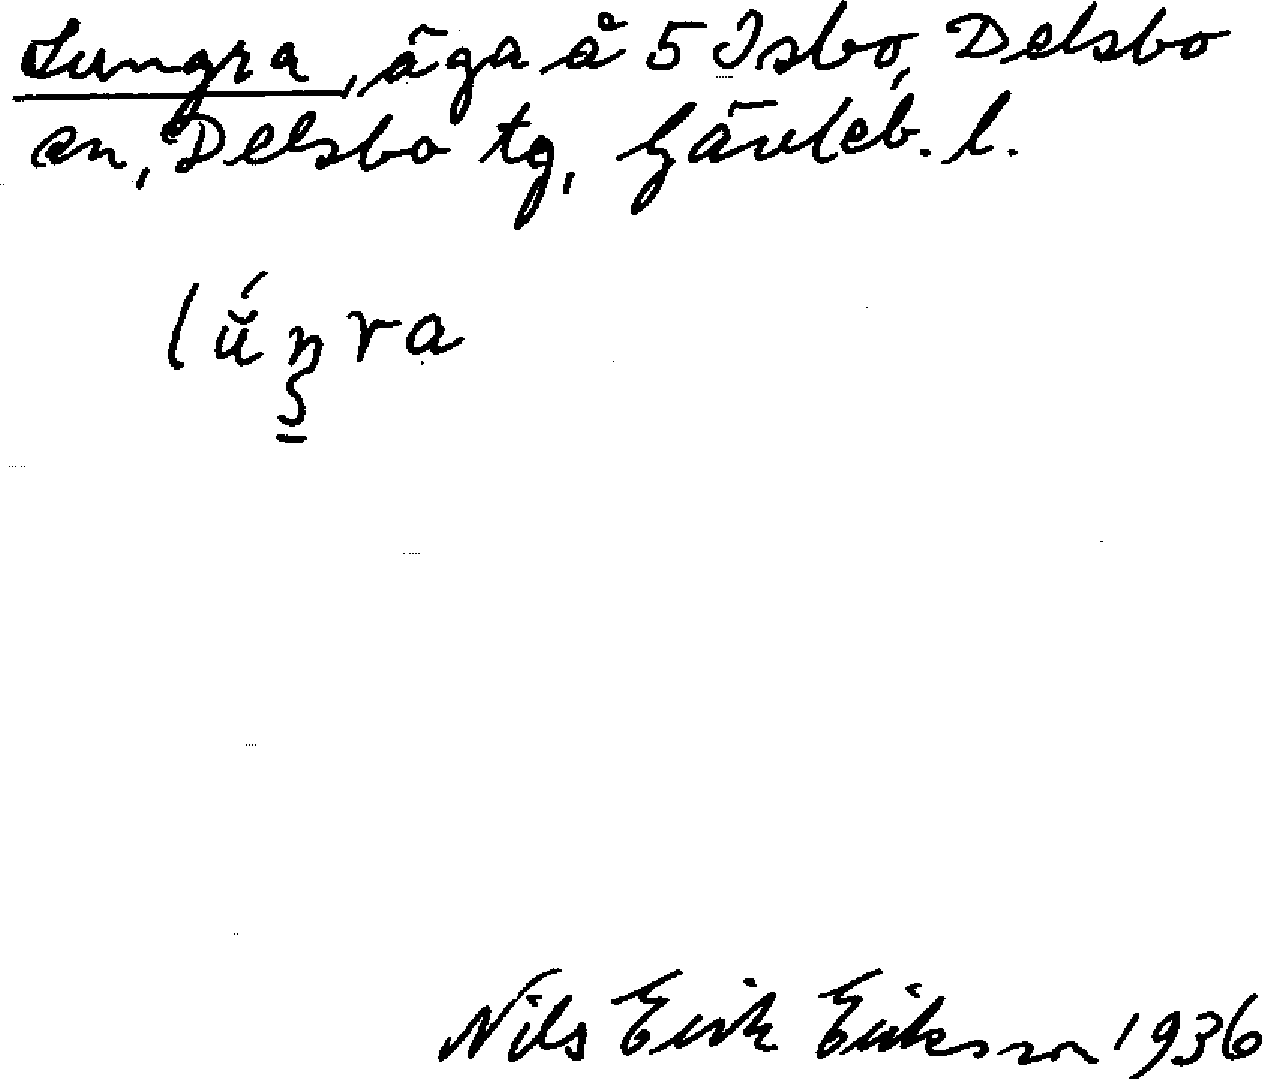 Lungra, äga å 5 Isbo, Delsbo
sn, Delsbo tg, Gävleb. l.
lŭ́n̠ra
Nils Erik Eriksson 1936